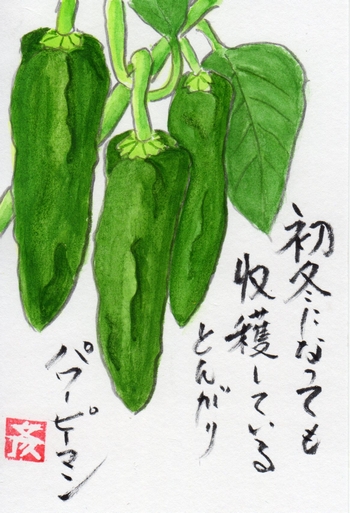 初冬になっても
収穫している
とんがり
パワーピーマン